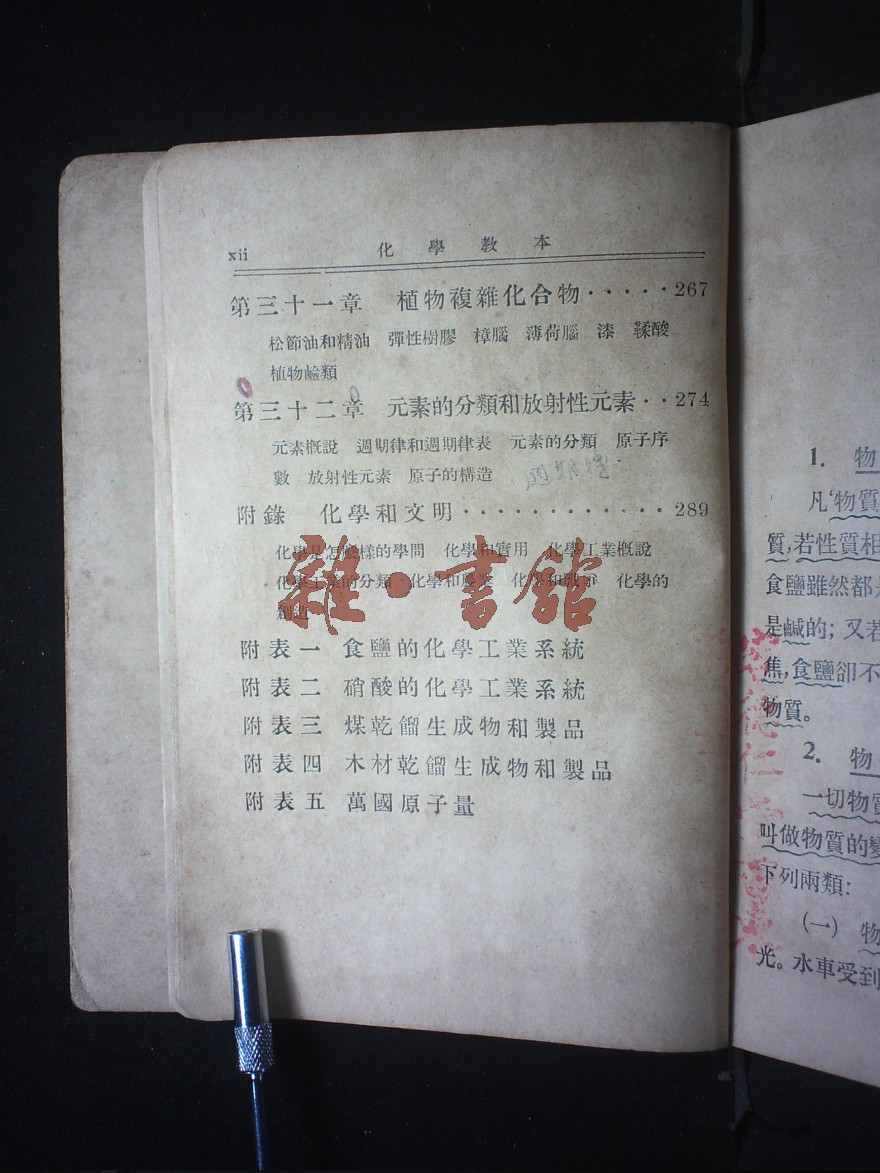 xii 化學教本
第三十一章 植物複雜化合物·····267
松節油和精油 彈性樹膠 樟腦 薄荷腦 漆 鞣酸
植物鹼類
第三十二章 元素的分類和放射性元素··274
元素概說 週期律和週期律表 元素的分類 原子序
數 放射性元素 原子的構造
附錄 化學和文明············289
化學是怎麼樣的學問 化學和實用 化學工業概說
化學工業的分類 化學和農業 化學和戰爭 化學的
創造
雜·書館
附表一 食鹽的化學工業系統
附表二 硝酸的化學工業系統
附表三 煤乾餾生成物和製品
附表四 木材乾餾生成物和製品
附表五 萬國原子量
1. 物
凡‘物質
質,若性質相
食鹽雖然都
是鹹的; 又若
焦,食鹽卻不
物質。
2. 物
一切物質
叫做物質的變
下列兩類:
(一) 物
光。水車受到